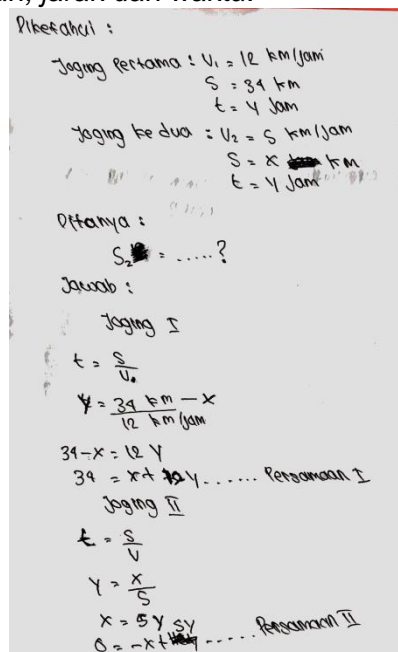 jarak dan waktu.
Diketahui :
Joging pertama : V₁ = 12 km/jam
S = 34 km
t = y Jam
Joging ke dua : V₂ = 5 km/Jam
S = x km
t = y Jam
Ditanya :
S₂ = ..... ?
Jawab :
Joging I
t = S/V₁
y = 34 km - x / 12 km/jam
34-x = 12 y
34 = x + 12y ...... Persamaan I
Joging II
t = S/V
y = x/5
x = 5y
0 = -x + 5y ..... Persamaan II